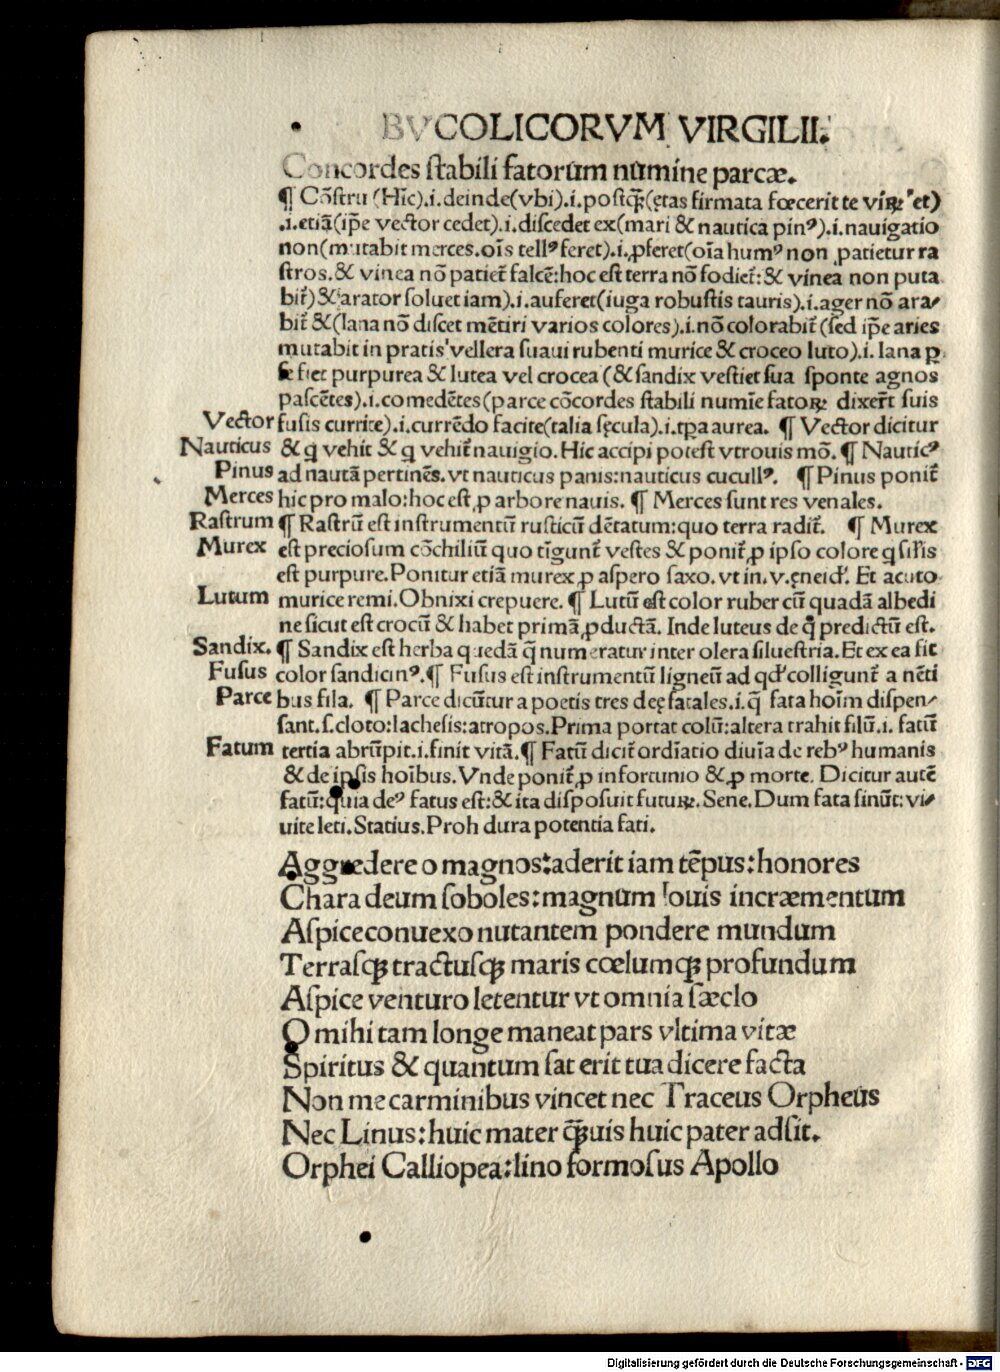 BVCOLICORVM VIRGILII.
Concordes ſtabili fatorum numine parcæ.
¶ Cōſtru (Hīc).i.deinde(vbi).i.poſtqꝫ(ętas firmata fœcerit te víꝝ et)
.i.etiā(ip̄e vector cedet).i.diſcedet ex(mari & nautica pinꝰ).i.nauigatio
non(mutabit merces.oīs tellꝰ feret).i.ꝓferet(oīa humꝰ non patietur ra
ſtros.& vinea nō patiet̄ falcē:hoc eſt terra nō fodiet̄:& vinea non puta
bit̄)&(arator ſoluet iam).i.auferet(iuga robuſtis tauris).i.ager nō ara/
bit̄ &(lana nō diſcet mētiri varios colores).i.nō colorabit̄ (ſed ip̄e aries
mutabit in pratis vellera ſuaui rubenti murice & croceo luto).i. lana ꝑ
ſe fiet purpurea & lutea vel crocea (& ſandix veſtiet ſua ſponte agnos
paſcētes).i.comedētes(parce cōcordes ſtabili numīe fatoꝝ dixert̄ ſuis
Vector fuſis currite).i.currēdo facite(talia ſęcula).i.tꝑa aurea. ¶ Vector dicitur
Nauticus & q̄ vehit & q̄ vehit̄ nauigio. Hic accipi poteſt vtrouis mō. ¶ Nauticꝰ
Pinus ad nautā pertinēs.vt nauticus panis:nauticus cucullꝰ. ¶ Pinus ponit̄
Merces hic pro malo:hoc eſt ꝓ arbore nauis. ¶ Merces ſunt res venales.
Raſtrum ¶ Raſtrū eſt inſtrumentū ruſticū dētatum:quo terra radit̄. ¶ Murex
Murex eſt precioſum cōchiliū quo tīgunt̄ veſtes & ponit̄ ꝓ ipſo colore q ſil̄is
eſt purpure.Ponitur etiā murex ꝓ aſpero ſaxo.vt in.v.ęneid̄. Et acuto
Lutum murice remi.Obnixi crepuere. ¶ Lutū eſt color ruber cū quadā albedi
ne ſicut eſt crocū & habet primā ꝓductā. Inde luteus de q̄ predictū eſt.
Sandix. ¶ Sandix eſt herba quedā q̄ numeratur inter olera ſilueſtria. Et ex ea fit
Fuſus color ſandicinꝰ.¶ Fuſus eſt inſtrumentū ligneū ad qd̄ colligunt̄ a nēti
Parce bus fila. ¶ Parce dicūtur a poetis tres deę fatales.i.q̄ fata hoīm diſpen/
ſant.ſ.cloto:lacheſis:atropos.Prima portat colū:altera trahit filū.i. fatū
Fatum tertia abrūpit.i.finit vitā.¶ Fatū dicit̄ ordīatio diuīa de rebꝰ humanis
& de ipſis hoībus.Vnde ponit̄ ꝓ infortunio & ꝓ morte. Dicitur autē
fatū:quia deꝰ fatus eſt:& ita diſpoſuit futuꝝ. Sene. Dum fata ſinūt: vi/
uite leti.Statius.Proh dura potentia fati.
Aggredere o magnos:aderit iam tēpus:honores
Chara deum ſoboles:magnum Iouis incræmentum
Aſpice conuexo nutantem pondere mundum
Terraſqꝫ tractuſqꝫ maris cœlumqꝫ profundum
Aſpice venturo letentur vt omnia ſæclo
O mihi tam longe maneat pars vltima vitæ
Spiritus & quantum ſat erit tua dicere facta
Non me carminibus vincet nec Traceus Orpheus
Nec Linus:huic mater q̄ꝫuis huic pater adſit.
Orphei Calliopea:lino formoſus Apollo
Digitalisierung gefördert durch die Deutsche Forschungsgemeinschaft - DFG